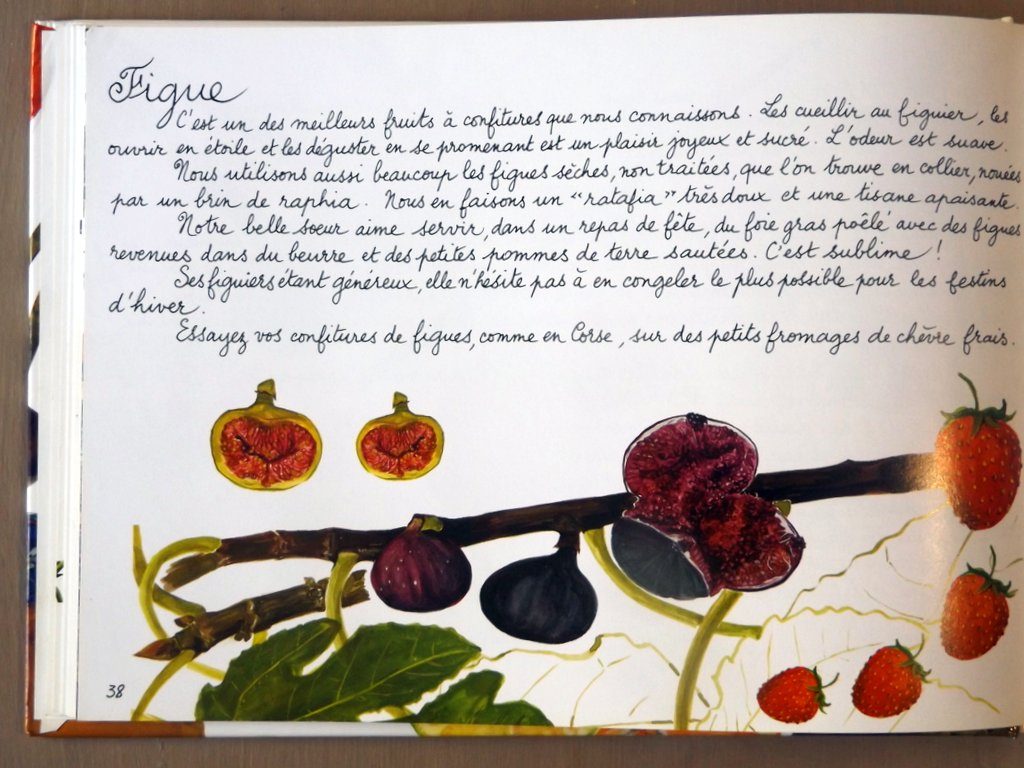 Figue
C'est un des meilleurs fruits à confitures que nous connaissons. Les cueillir au figuier, les
ouvrir en étoile et les déguster en se promenant est un plaisir joyeux et sucré. L'odeur est suave.
Nous utilisons aussi beaucoup les figues sèches, non traitées, que l'on trouve en collier, nouées
par un brin de raphia. Nous en faisons un "ratafia" très doux et une tisane apaisante.
Notre belle soeur aime servir, dans un repas de fête, du foie gras poêlé avec des figues
revenues dans du beurre et des petites pommes de terre sautées. C'est sublime !
Ses figuiers étant généreux, elle n'hésite pas à en congeler le plus possible pour les festins
d'hiver.
Essayez vos confitures de figues, comme en Corse, sur des petits fromages de chèvre frais.
38